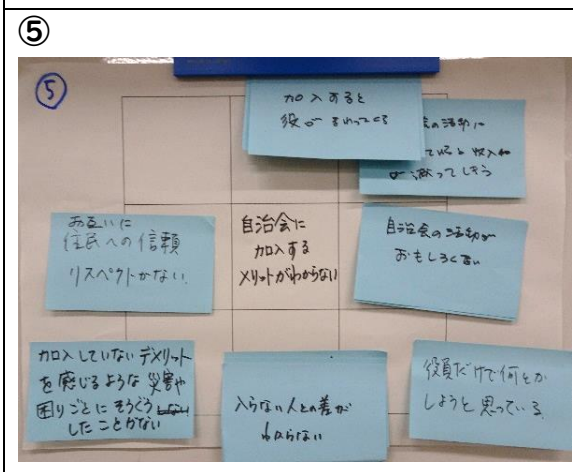 ⑤
⑤
加入すると
役がまわってくる
会の活動に
ていると収入が
減ってしまう
お互いに
住民への信頼
リスペクトがない
自治会に
加入する
メリットがわからない
自治会の活動が
おもしろくない
加入していないデメリット
を感じるような災害や
困りごとにそうぐう
したことがない
入らない人との差が
わからない
役員だけで何とか
しようと思っている